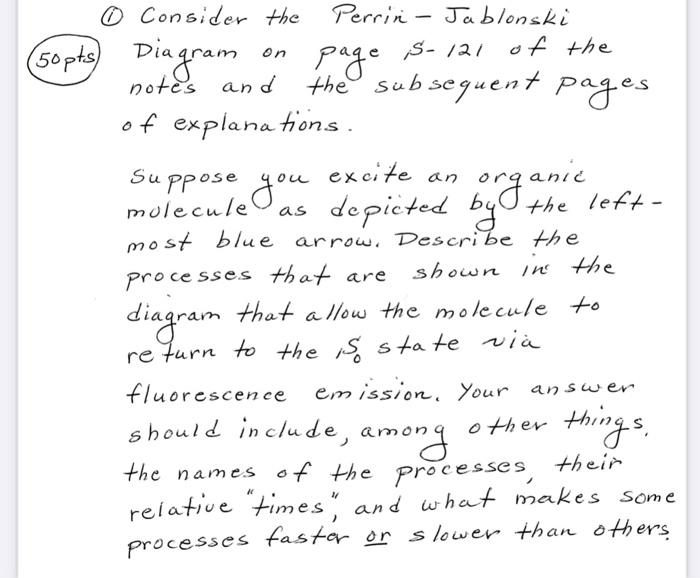 ① Consider the Perrin - Jablonski
50pts Diagram on page S-121 of the
notes and the subsequent pages
of explanations.
Suppose you excite an organic
molecule as depicted by the left-
most blue arrow. Describe the
processes that are shown in the
diagram that allow the molecule to
return to the S₀ state via
fluorescence emission. Your answer
should include, among other things,
the names of the processes, their
relative "times", and what makes some
processes faster or slower than others.